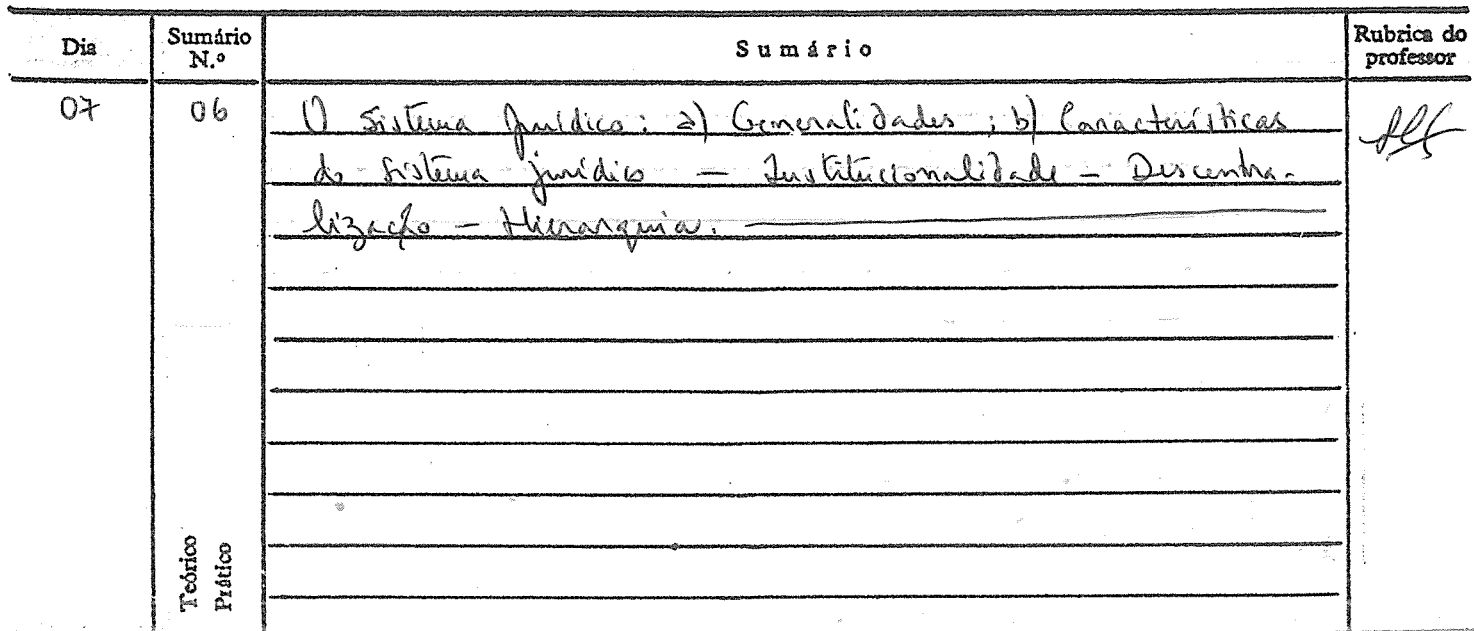 Dia Sumário N.º Sumário Rubrica do professor
07 06 O Sistema Jurídico: a) Generalidades; b) Características
do sistema jurídico — Institucionalidade - Descentra-
lização - Hierarquia.
Teórico
Prático